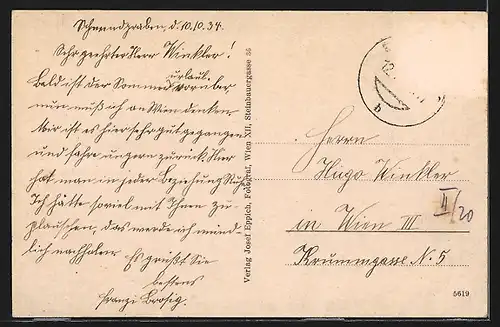 Schwendgraben, d. 10.10.34.
Sehr geehrter Herr Winkler!
Bald ist der Sommerurlaub vorüber
nun muß ich an Wien denken.
Mir ist es hier sehr gut gegangen
und fahre ungern zurück. Hier
hat man in jeder Beziehung Ruhe
Ich hätte soviel mit Ihnen zu
plauschen, das werde ich münd-
lich nachholen. Es grüßt Sie
bestens
Franzi Brosig.
Verlag Josef Eppich, Fotograf, Wien XII, Steinbauergasse 36
Herrn
Hugo Winkler
in Wien III
Krummgasse N. 5
II/20
5619